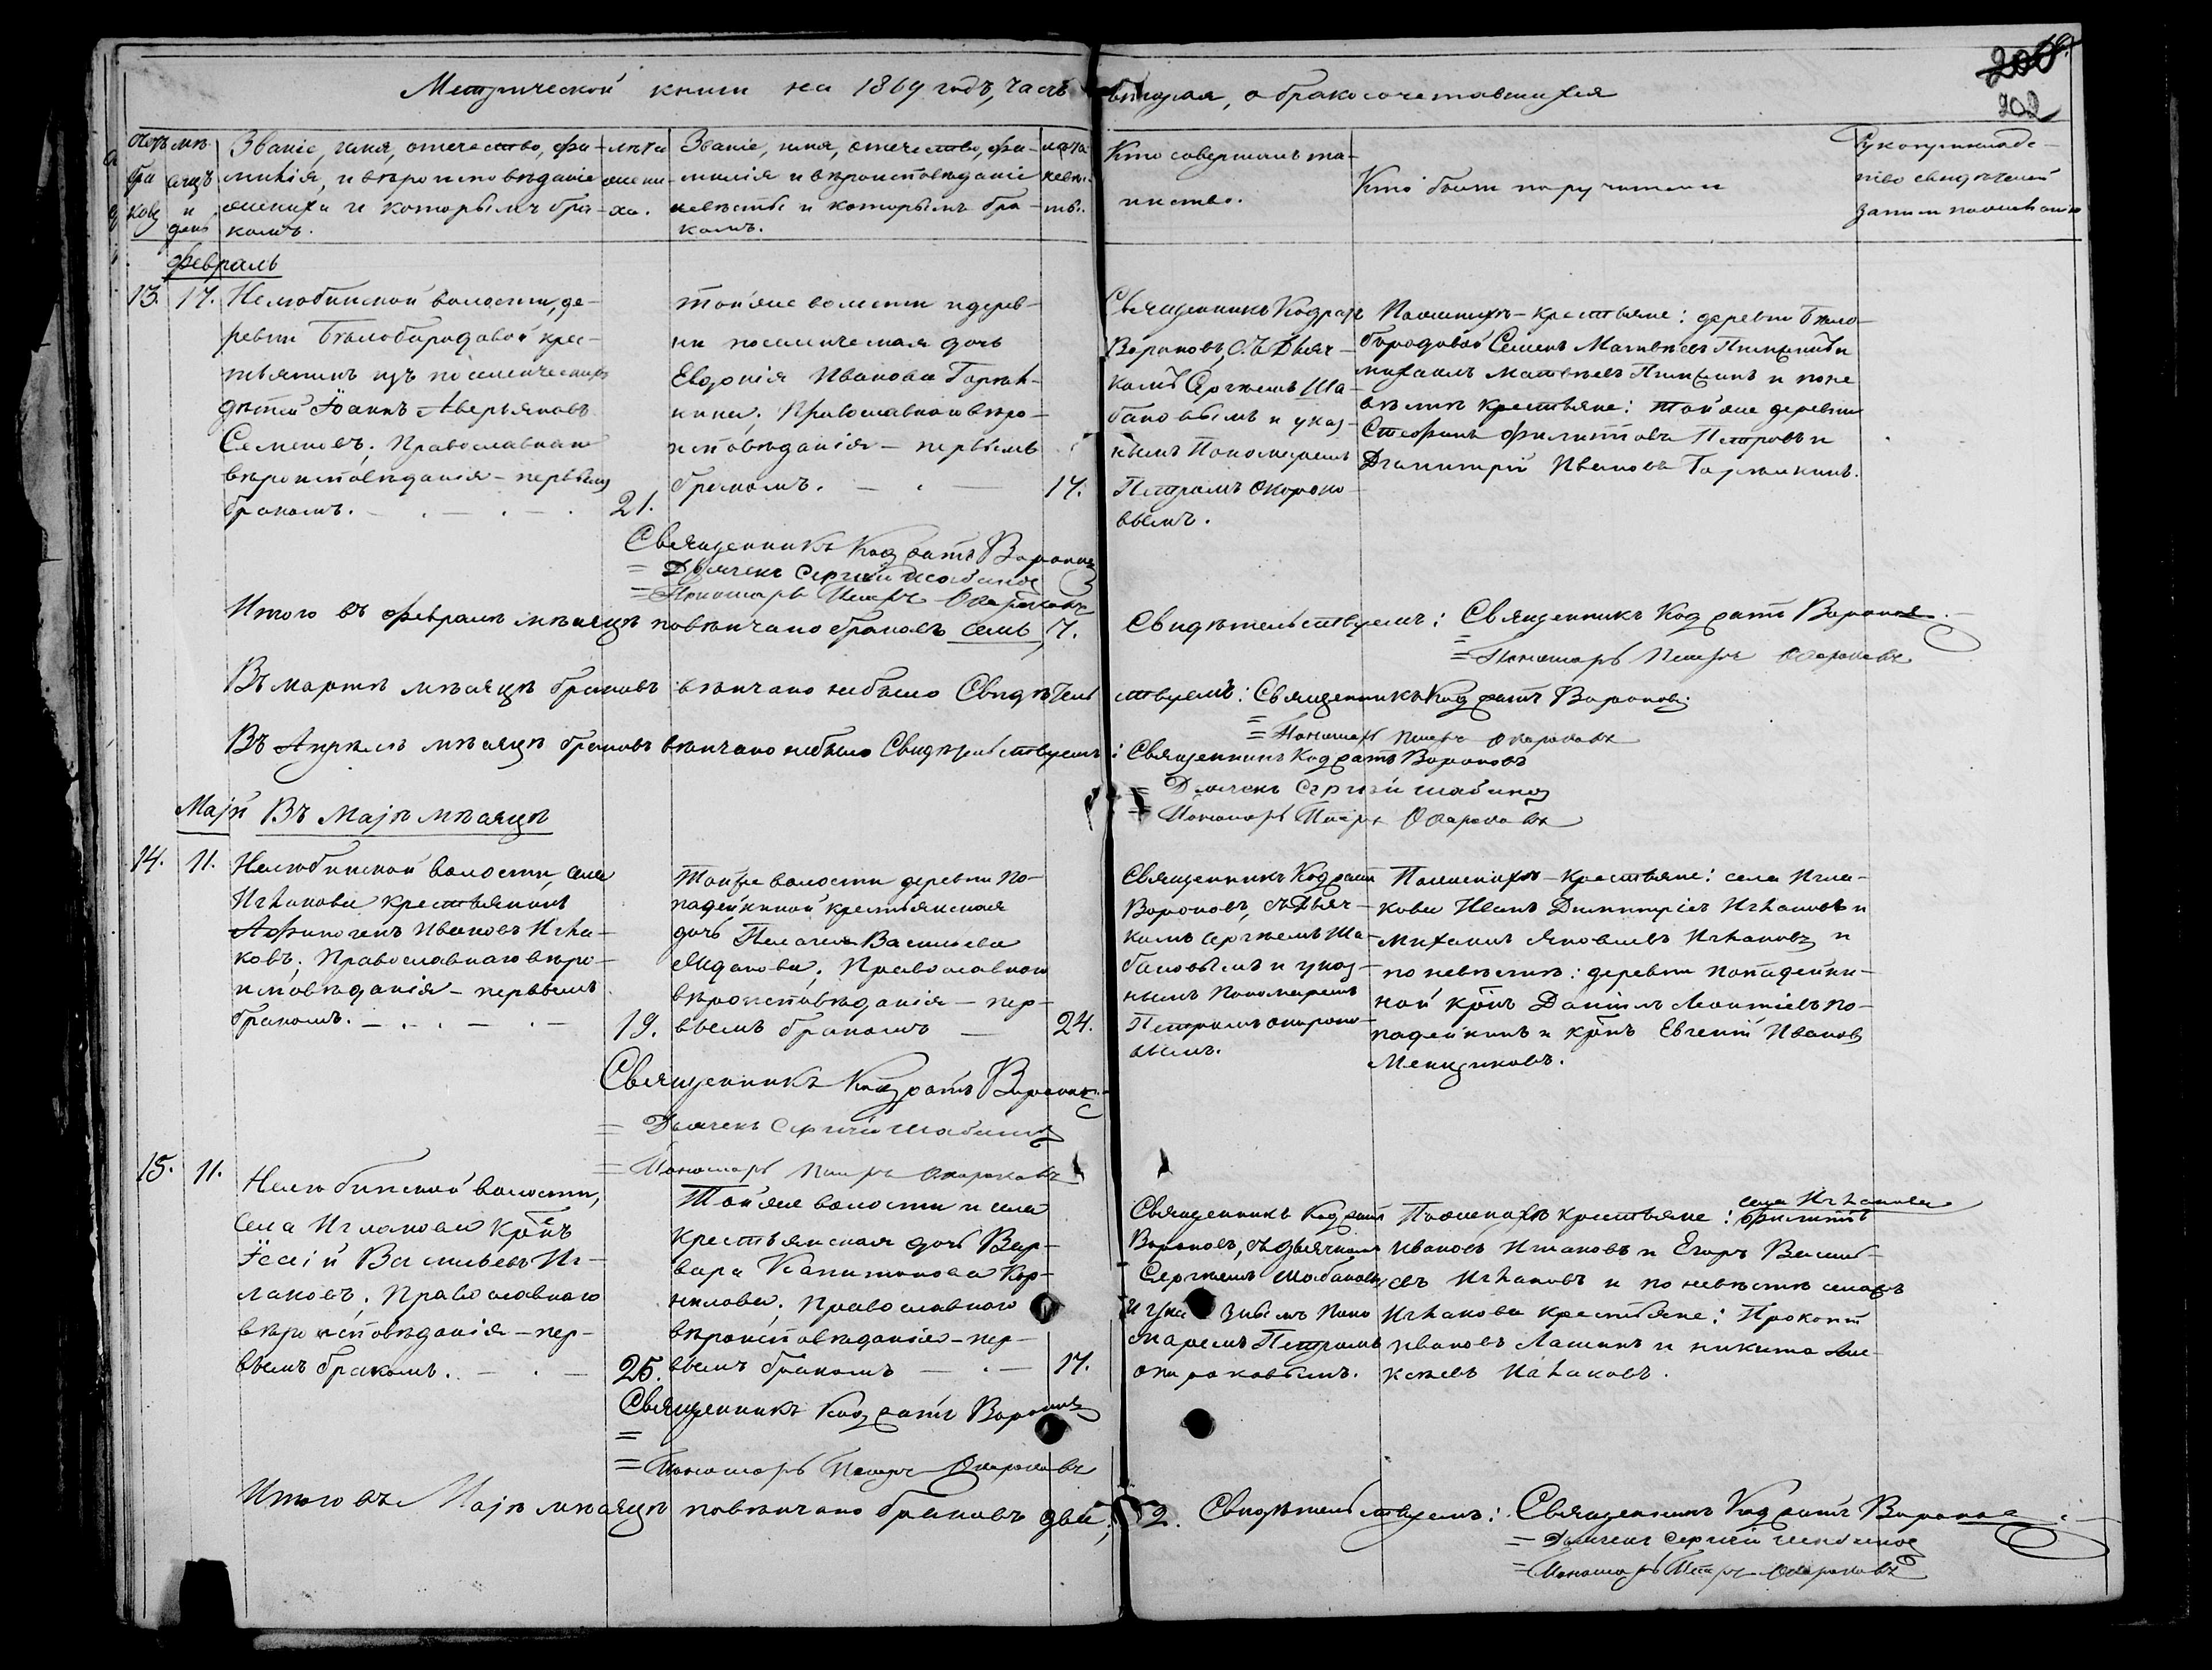 200
202
Метрической книги на 1869 годъ, часть вторая, о бракосочетавшихся
Звание, имя, отечество, фа-
милія, и вѣроисповѣданіе
жениха и которымъ бра-
комъ.
лѣта
жени-
ха.
Званіе, имя, отечество, фа-
милія и вѣроисповѣданіе
невѣсты и которымъ бра-
комъ.
лѣта
невѣс-
ты.
Кто совершалъ та-
инство.
Кто были поручители
Рукоприкладс-
тво свидѣтелей
записи по желанію
мѣ-
сяцъ
и
день
Февраль
13. 17. Нелюбинской волости, де-
ревни Бѣлобородовой крес-
тьянинъ изъ поселенческихъ
дѣтей Іоаннъ Аверьяновъ
Семеновъ; Православнаго
вѣроисповѣданія - первымъ
бракомъ. 21.
Той же волости и дерев-
ни поселенческая дочь
Евдокія Иванова
Православнаго вѣро-
исповѣданія - первымъ
бракомъ. 17.
Священникъ Кодратъ
Вороновъ, съ Дьяч-
комъ Сергѣемъ Ша-
бановымъ и указ-
нымъ Пономаремъ
Петромъ Окороко-
вымъ.
По женихѣ - крестьяне: деревни Бѣло-
бородовой Семенъ Матвѣевъ и
Михаилъ Матвѣевъ и по не
вѣстѣ крестьяне: той же деревни
Стефанъ Филипповъ Петровъ и
Димитрій Ивановъ
Священникъ Кодратъ Вороновъ
= Дьячекъ Сергѣй Шабановъ
= Пономарь Петръ Окороковъ
Итого въ Февралѣ мѣсяцѣ повѣнчано браковъ семь, 7. Свидѣтельствуемъ: Священникъ Кодратъ Вороновъ
= Пономарь Петръ Окороковъ
Въ мартѣ мѣсяцѣ браковъ вѣнчано небыло Свидѣтель ствуемъ: Священникъ Кодратъ Вороновъ
= Пономарь Петръ Окороковъ
Въ Апрѣлѣ мѣсяцѣ браковъ вѣнчано небыло Свидѣтельствуемъ: Священникъ Кодратъ Вороновъ
= Дьячекъ Сергѣй Шабановъ
= Пономарь Петръ Окороковъ
Маій Въ Маіѣ мѣсяцѣ
14. 11. Нелюбинской волости, села
Иглакова крестьянинъ
Афиногенъ Ивановъ Игла-
ковъ; Православнаго вѣро-
исповѣданія - первымъ
бракомъ. 19.
Той же волости деревни По-
падейкиной крестьянская
дочь Пелагея Васильева
Православнаго
вѣроисповѣданія - пер-
вымъ бракомъ 24.
Священникъ Кодратъ
Вороновъ, съ Дьяч-
комъ Сергѣемъ Ша-
бановымъ и указ-
нымъ Пономаремъ
Петромъ Окороко-
вымъ.
По женихѣ - крестьяне: села Игла-
кова Иванъ Димитріевъ Иглаковъ и
Михаилъ Яковлевъ Иглаковъ и
по невѣстѣ: деревни Попадейки-
ной кр̃нъ Даніилъ Леонтіевъ По-
падейкинъ и кр̃нъ Евгеній Ивановъ
Менщиковъ.
Священникъ Кодратъ Вороновъ
= Дьячекъ Сергѣй Шабановъ
= Пономарь Петръ Окороковъ
15. 11. Нелюбинской волости,
села Иглакова кр̃нъ
Васильевъ Иг-
лаковъ; Православнаго
вѣроисповѣданія - пер-
вымъ бракомъ. 25.
Той же волости и села
крестьянская дочь Вар-
вара Капитонова Кор-
нилова; Православнаго
вѣроисповѣданія - пер-
вымъ бракомъ 17.
Священникъ Кодратъ
Вороновъ, съ Дьячкомъ
Сергѣемъ Шабановы
и указнымъ Поно
маремъ Петромъ
Окороковымъ.
села Иглакова
По женихѣ крестьяне: Филиппъ
Ивановъ Иглаковъ и Егоръ Василь-
евъ Иглаковъ и по невѣстѣ
Иглакова крестьяне: Прокопій
Ивановъ Лашинъ и Никита Але-
ксѣевъ Иглаковъ.
Священникъ Кодратъ Вороновъ
=
= Пономарь Петръ Окороковъ
Итого въ Маіѣ мѣсяцѣ повѣнчано браковъ два, 2. Свидѣтельствуемъ: Священникъ Кодратъ Вороновъ
= Дьячекъ Сергѣй Шабановъ
= Пономарь Петръ Окороковъ